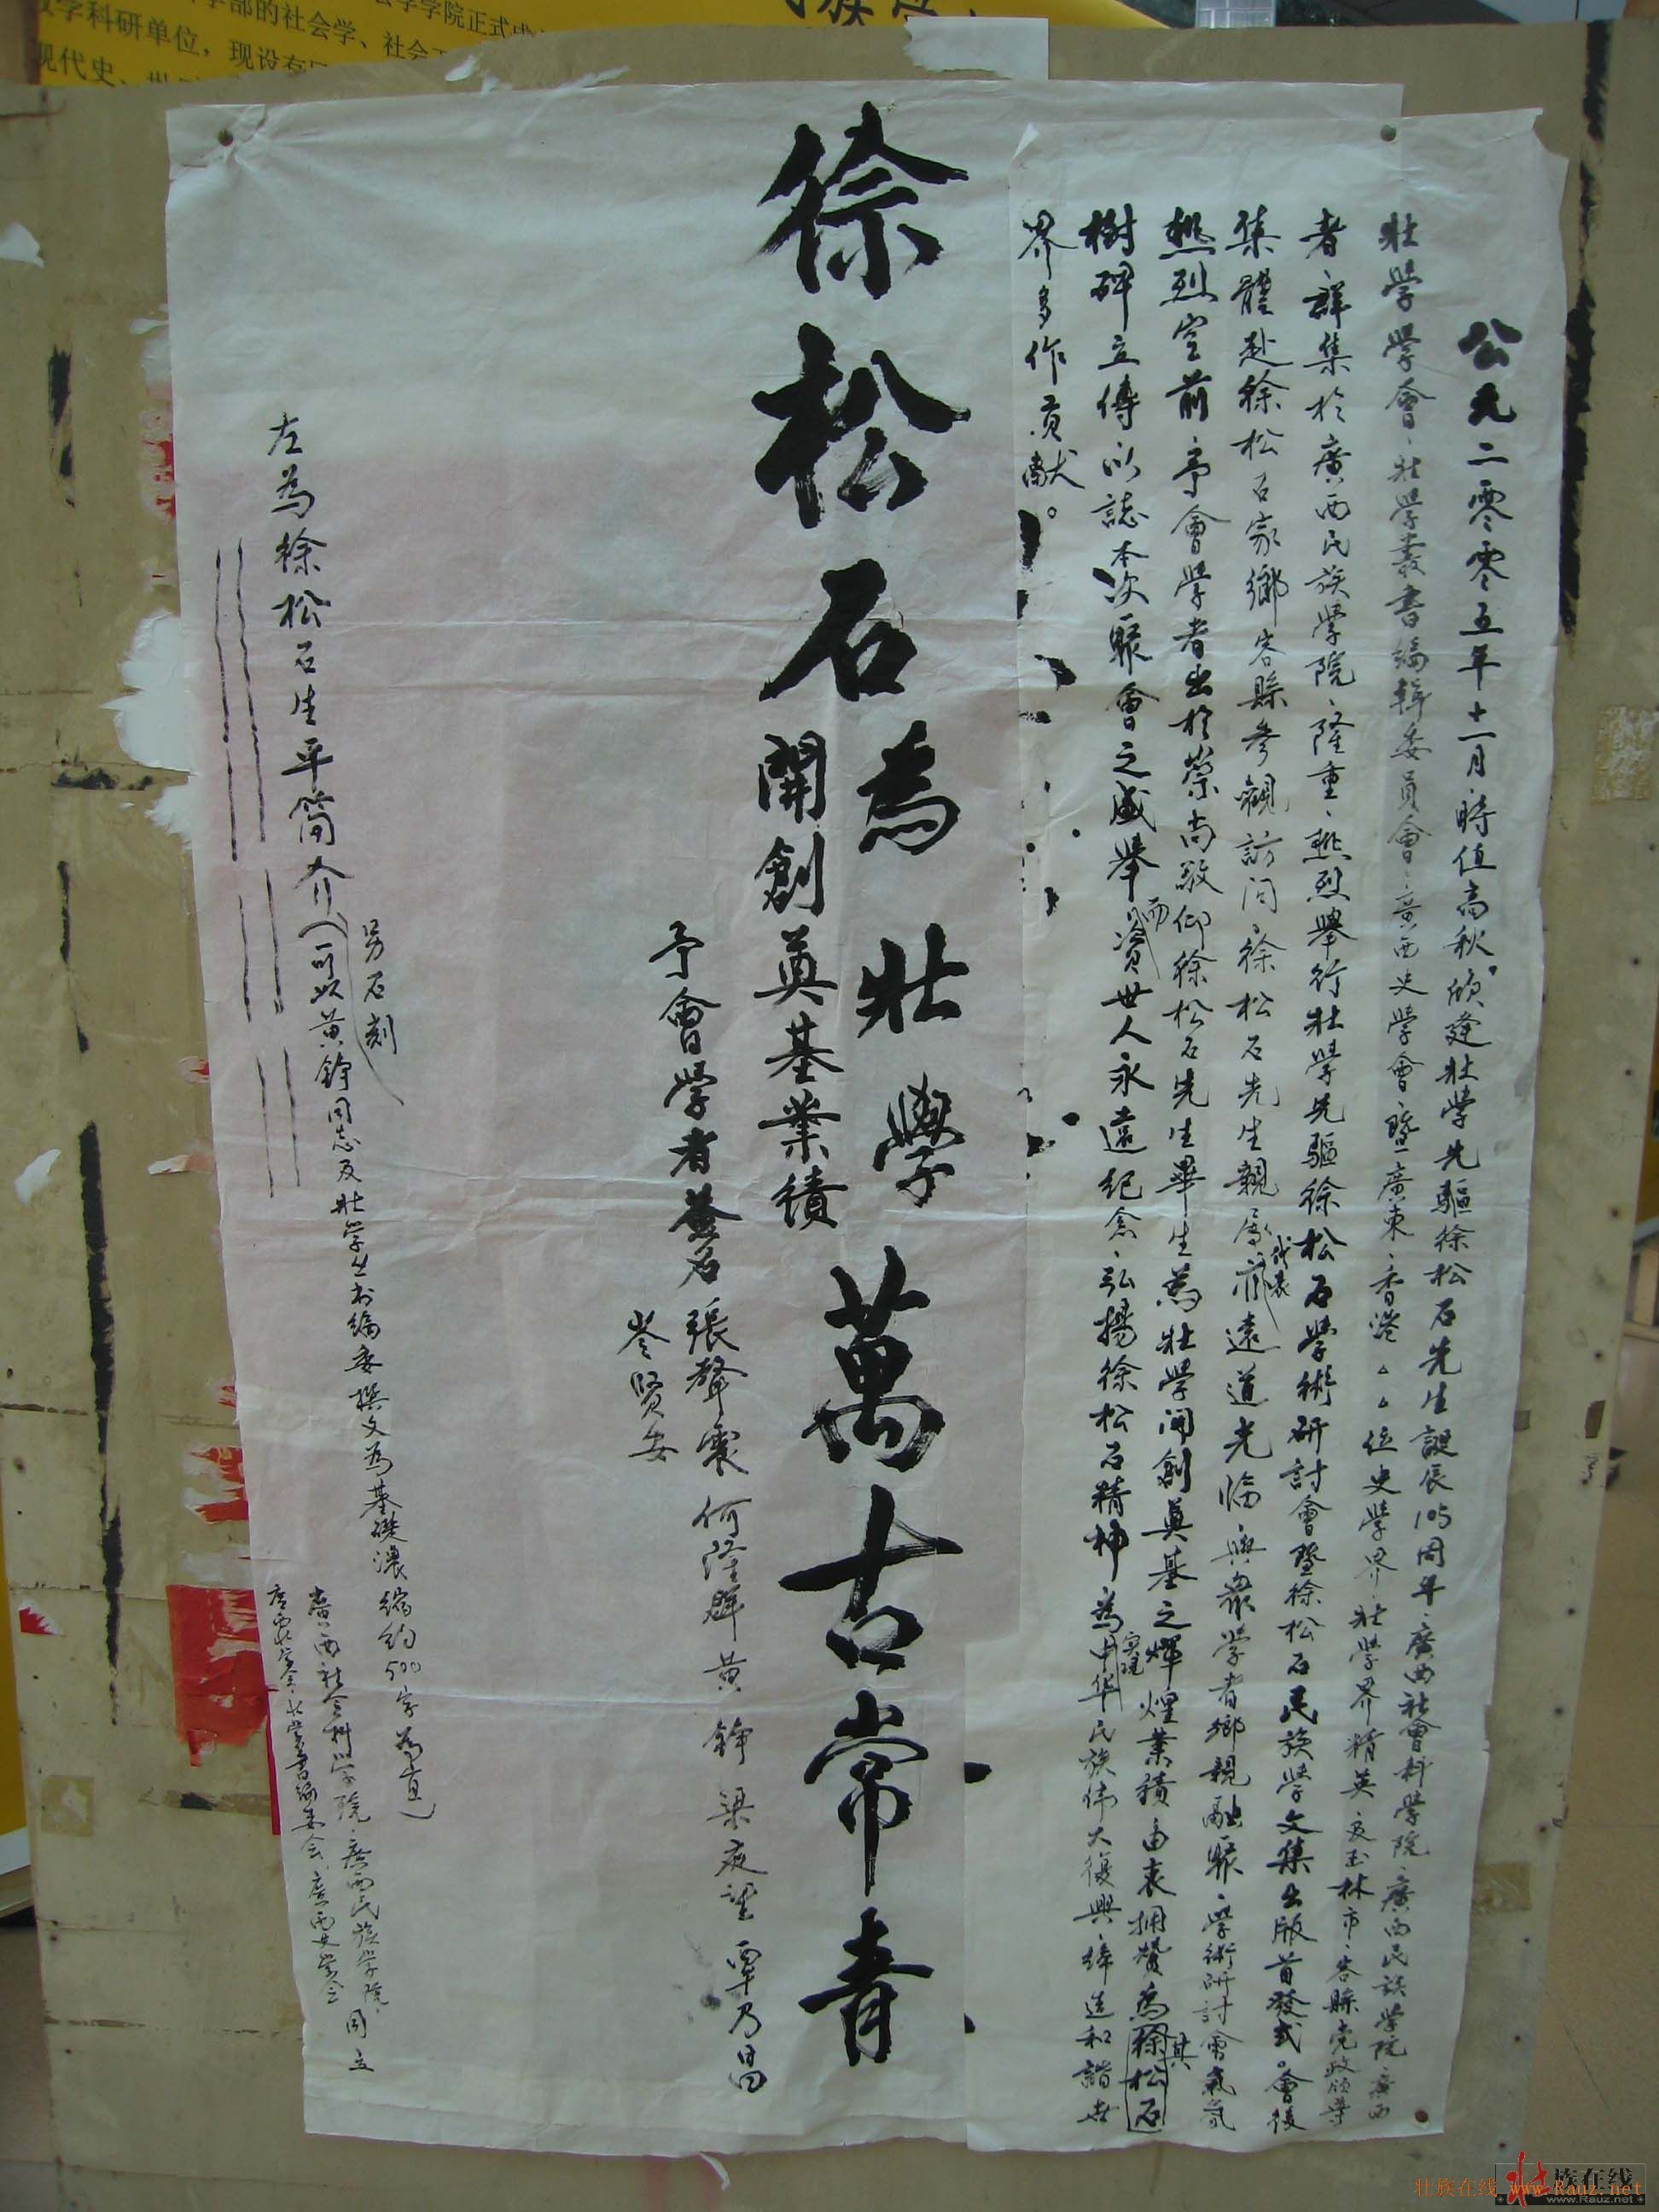 公元二零零五年十一月時值高秋欣逢壯學先驅徐松石先生誕辰105周年、廣西社會科學院、廣西民族學院、廣西
壯學學會、壯學叢書編輯委員會、广西史學會暨廣東、香港△△位史學界、壯學界精英及玉林市、容縣党政領導
者群集於廣西民族學院、隆重、熱烈舉行壯學先驅徐松石學術研討會暨徐松石民族學文集出版首發式。會後
集體赴徐松石家鄉容縣參觀訪问、徐松石先生親屬代表遠道光临與眾學者鄉親融聚、學術研討會氣氛
熱烈空前、予會學者出於崇尚敬仰徐松石先生畢生為壯學開創奠基之輝煌業積由衷拥贊為其徐松石
樹碑立傳以誌本次聚會之盛舉而資世人永遠紀念弘揚徐松石精神為实现中华民族伟大復興、締造和諧世
界多作貢献。
徐松石為壯學萬古常青
開創奠基業績
予會學者簽名 張聲震 何隆群 黄錚 梁庭望 覃乃昌
岑賢安
另石刻
左為徐松石生平简介(可以黄錚同志及壯學丛书編委撰文為基礎濃縮約500字為宜)
廣西社会科学院、廣西民族学院、
廣西壯学学会、壯学丛書編委会、廣西史学会 同立
学部的社会学、社会工
学院正式成
学科研单位，现设有
现代史、
族学
壮族在线 www.Rauz.net
壮族在线
www.Rauz.net